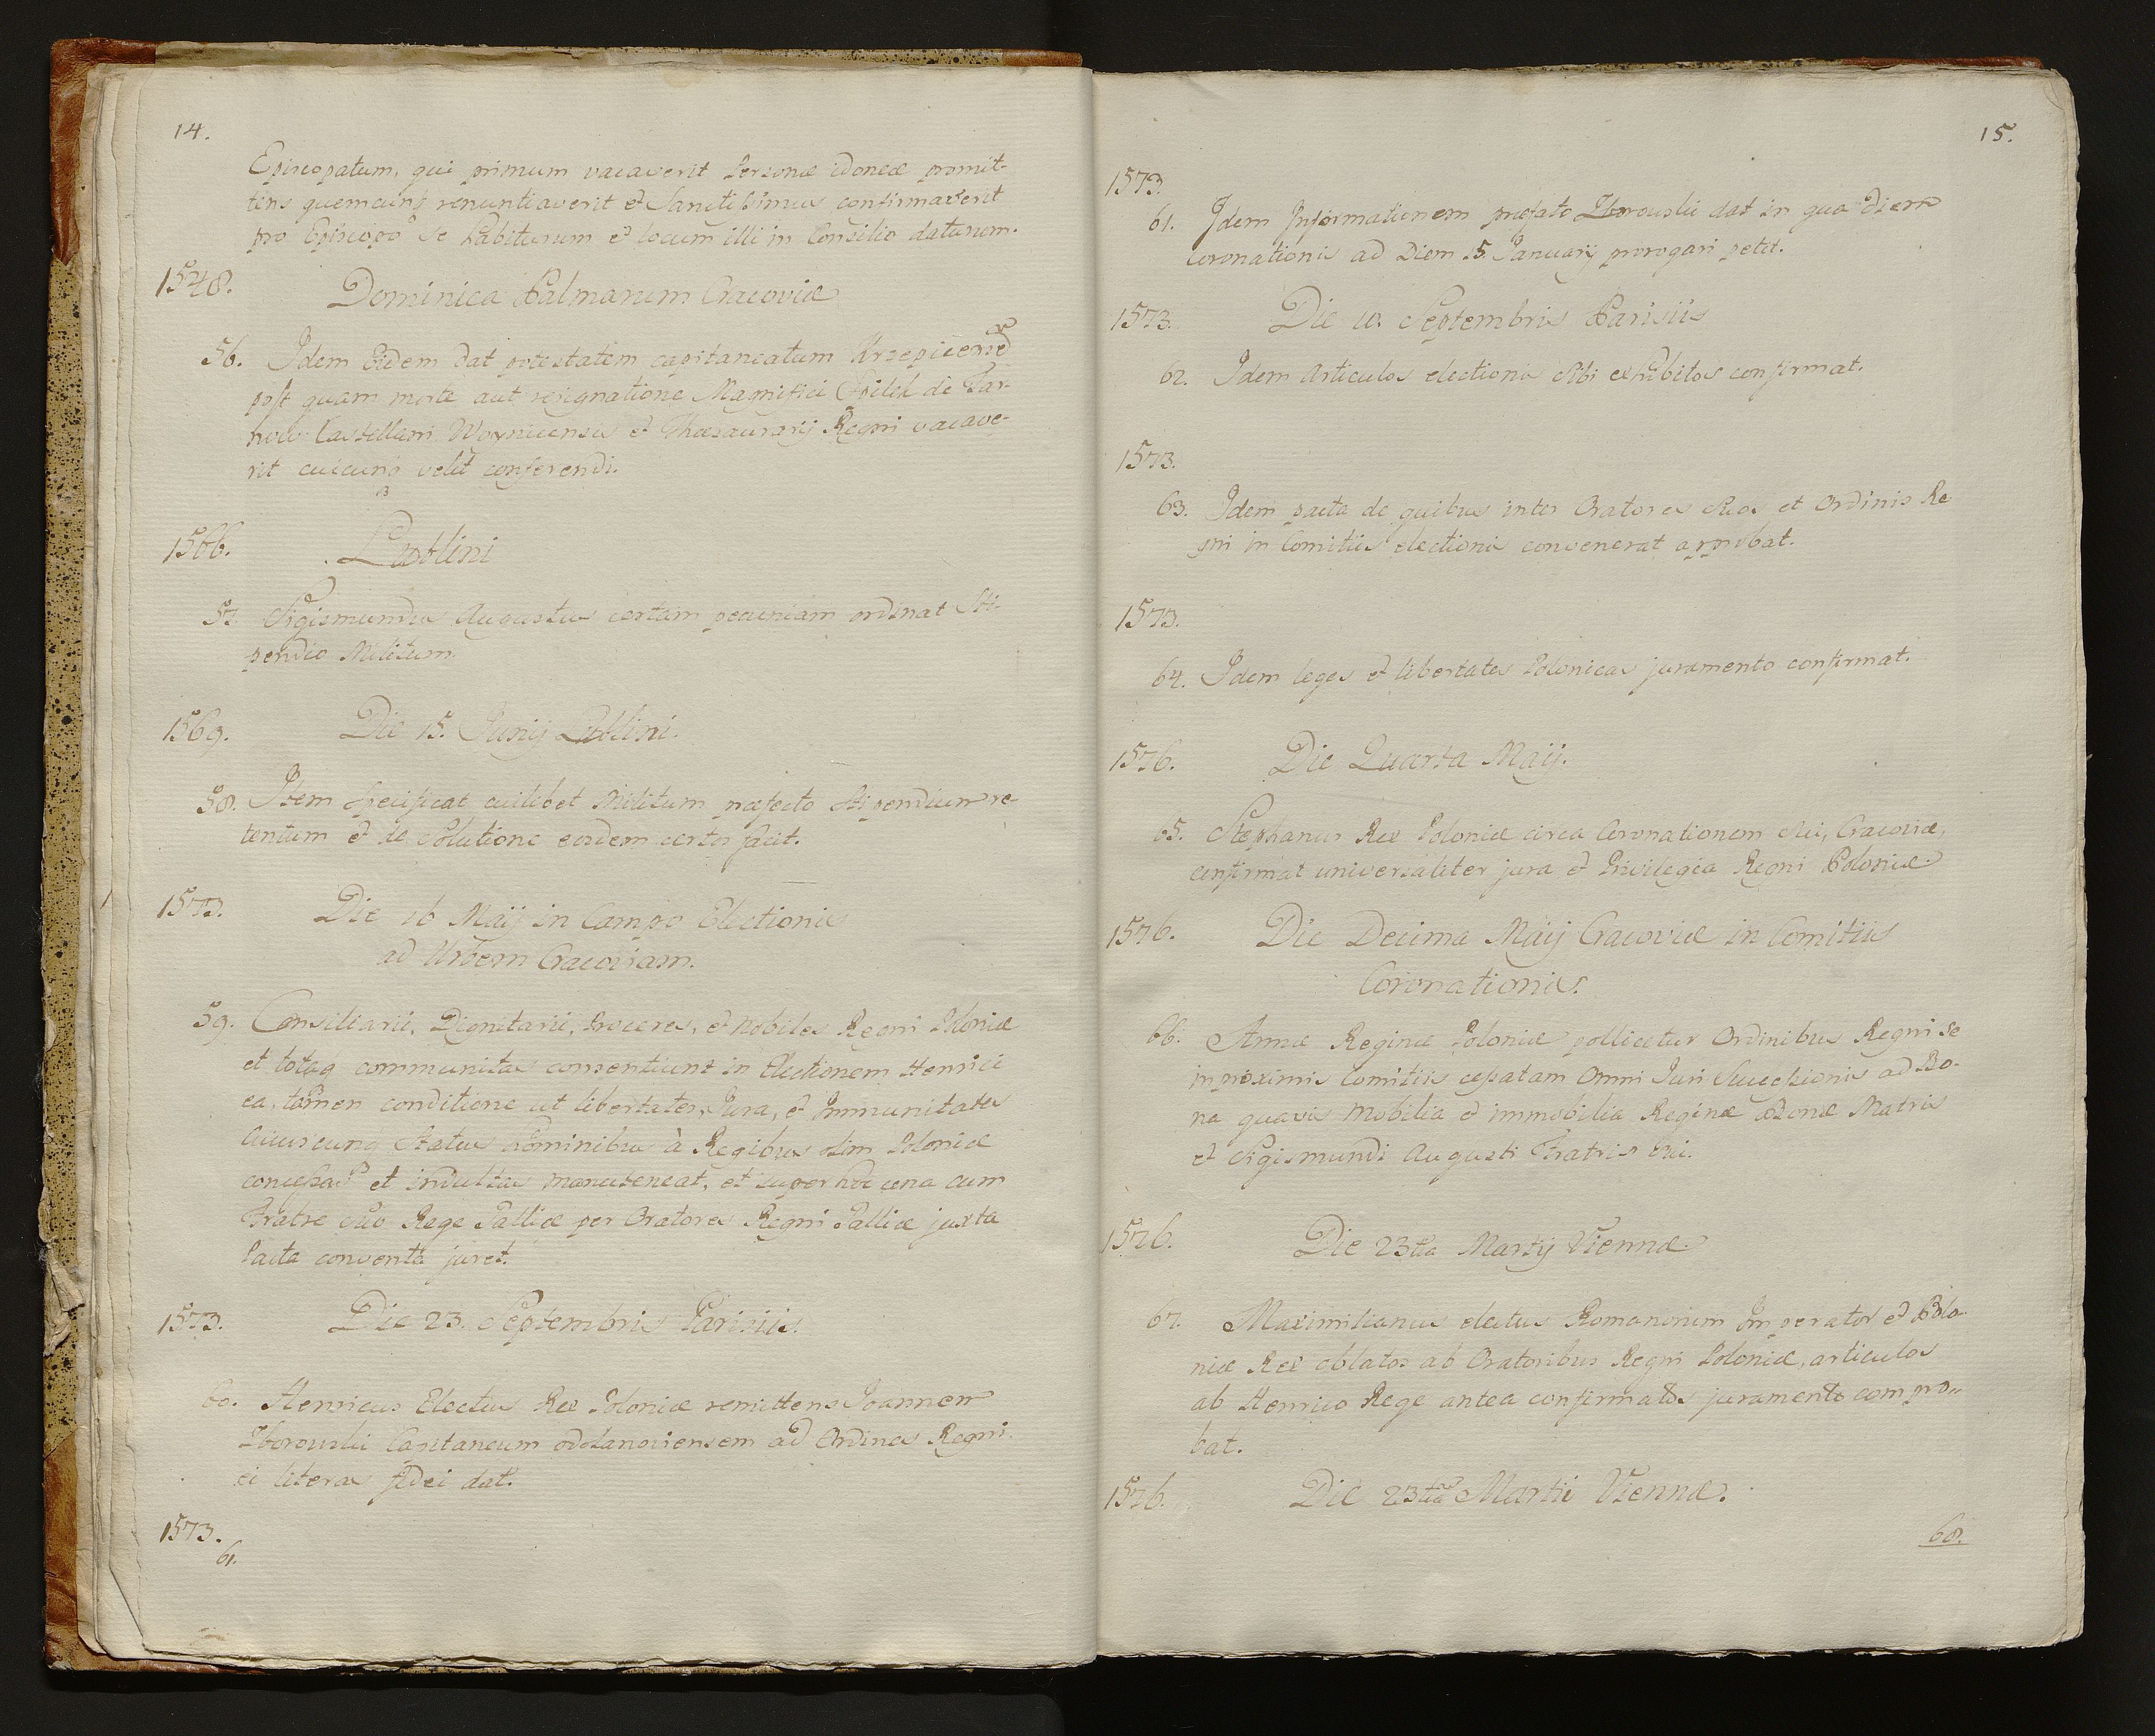 14.
Episcopatum, qui primum vacaverit Personæ idoneæ promit-
tens quemcunq renuntiaverit et Sanctissimus confirmaverit
pro Episcopo se habiturum et locum illi in Consilio daturum.
1548. Dominica Palmarum Cracoviæ
56. Idem Eidem dat potestatem capitaneatum Krzepicen
post quam morte aut resignatione Magnifici Spitek de Tar-
now Castellani Woynicensis et Thesaurarij Regni vacave-
rit cuicunq velit conferendi.
1566. Lublini
57. Sigismundus Augustus certam pecuniam ordinat Sti-
pendio Militum.
1569. Die 15. Junij Lublini.
58. Item specificat cuilibet Militum præfecto Stipendium re-
tentum et de Solutione eosdem certos facit.
1573. Die 16 Maij in Campo Electionis
ad Urbem Cracoviam.
59. Consiliarii, Dignitarii, Proceres, et Nobiles Regni Poloniæ
et totaq communitas consentiunt in Electionem Henrici
ea tamen conditione ut libertates, Jura, et Immunitates
cuiuscunq Status hominibus à Regibus olim Poloniæ
concessas et indultas manuteneat, et super hoc una cum
Fratre suo Rege Galliæ per Oratores Regni Galliæ juxta
Pacta conventa juret.
1573. Die 23. Septembris Parisiis.
60. Henricus Electus Rex Poloniæ remittens Joannem
Zborowski Capitaneum odolanoviensem ad Ordines Regni
ei literas fidei dat.
1573.
61.
15.
1573.
61. Idem Informationem præfato Zborouskii dat in qua Diem
Coronationis ad Diem 15 Januarij prorogari petit.
1573. Die 10. Septembris Parisiis
62. Idem Articulos electionis sibi exhibitos confirmat.
1573.
63. Idem pacta de quibus inter Oratores suos et Ordinis Re
gni in Comitiis electionis convenerat approbat.
1573.
64. Idem leges et libertates Polonicas juramento confirmat.
1576. Die Quarta Maij.
65. Stephanus Rex Poloniæ circa Coronationem sui, Cracoviæ,
confirmat universaliter jura et Privilegia Regni Poloniæ
1576. Die Decima Maij Cracoviæ in Comitiis
Coronationis.
66. Annæ Reginæ Poloniæ pollicetur Ordinibus Regni se
in proximis Comitiis cessatam Omni Juri Successionis ad Bo-
na quævis mobilia et immobilia Reginæ Bonæ Matris
et Sigismundi Augusti Fratris sui.
1576. Die 23tia Martij Viennæ.
67. Maximilianus electus Romanorum Imperator et Polo-
niæ Rex oblatos ab Oratoribus Regni Poloniæ, articulos
ab Henrico Rege antea confirmatos juramento compro-
bat.
1576. Die 23tia Martii Viennæ.
68.